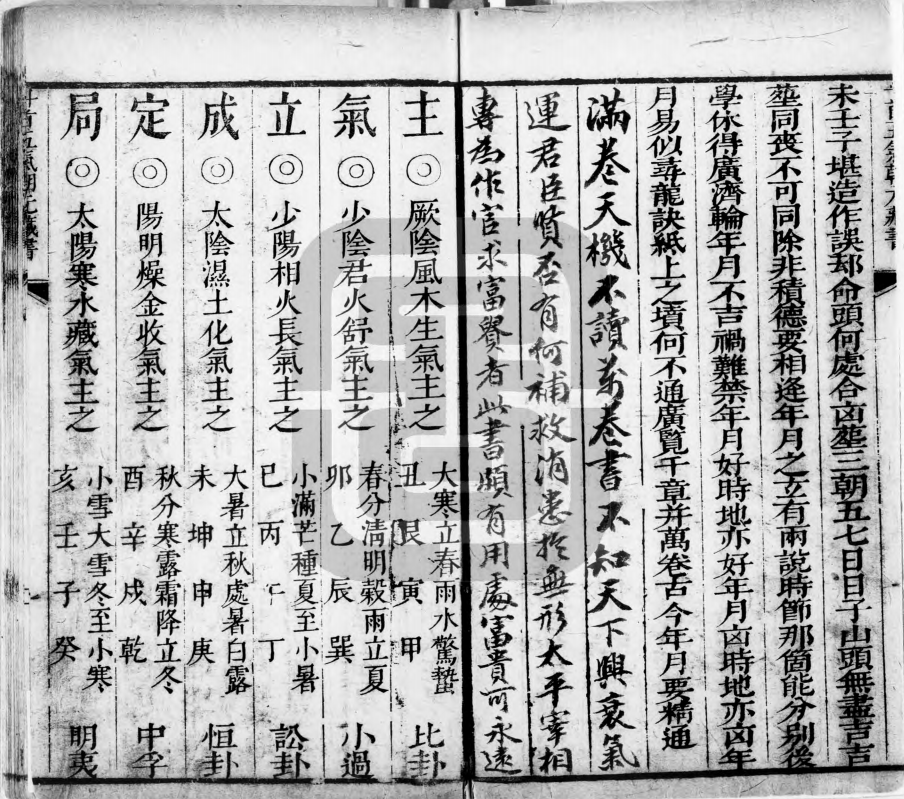 未士子堪造作誤却命頭何處合凶塟三朝五七日日子山頭無盡吉吉
塟同喪不可同除非積德要相逢年月之立有兩說時節那箇能分別後
學休得廣濟輪年月不吉禍難禁年月好時地亦好年月凶時地亦凶年
月易似尋龍訣紙上之墳何不通廣覧千章并萬卷古今年月要精通
滿巻天機不讀萬巻書不知天下興衰氣
運君臣賢否有何補救消患扵無形太平宰相
專為作官求富貴者此書頗有用處富貴可永遠
主 ◎ 厥陰風木生氣主之 大寒立春雨水驚蟄 丑艮寅甲 比卦
氣 ◎ 少陰君火舒氣主之 春分清明穀雨立夏 卯乙辰巽 小過
立 ◎ 少陽相火長氣主之 小滿芒種夏至小暑 巳丙午丁 訟卦
成 ◎ 太陰濕土化氣主之 大暑立秋處暑白露 未坤申庚 恒卦
定 ◎ 陽明燥金收氣主之 秋分寒露霜降立冬 酉辛戌乾 中孚
局 ◎ 太陽寒水藏氣主之 小雪大雪冬至小寒 亥壬子癸 明夷